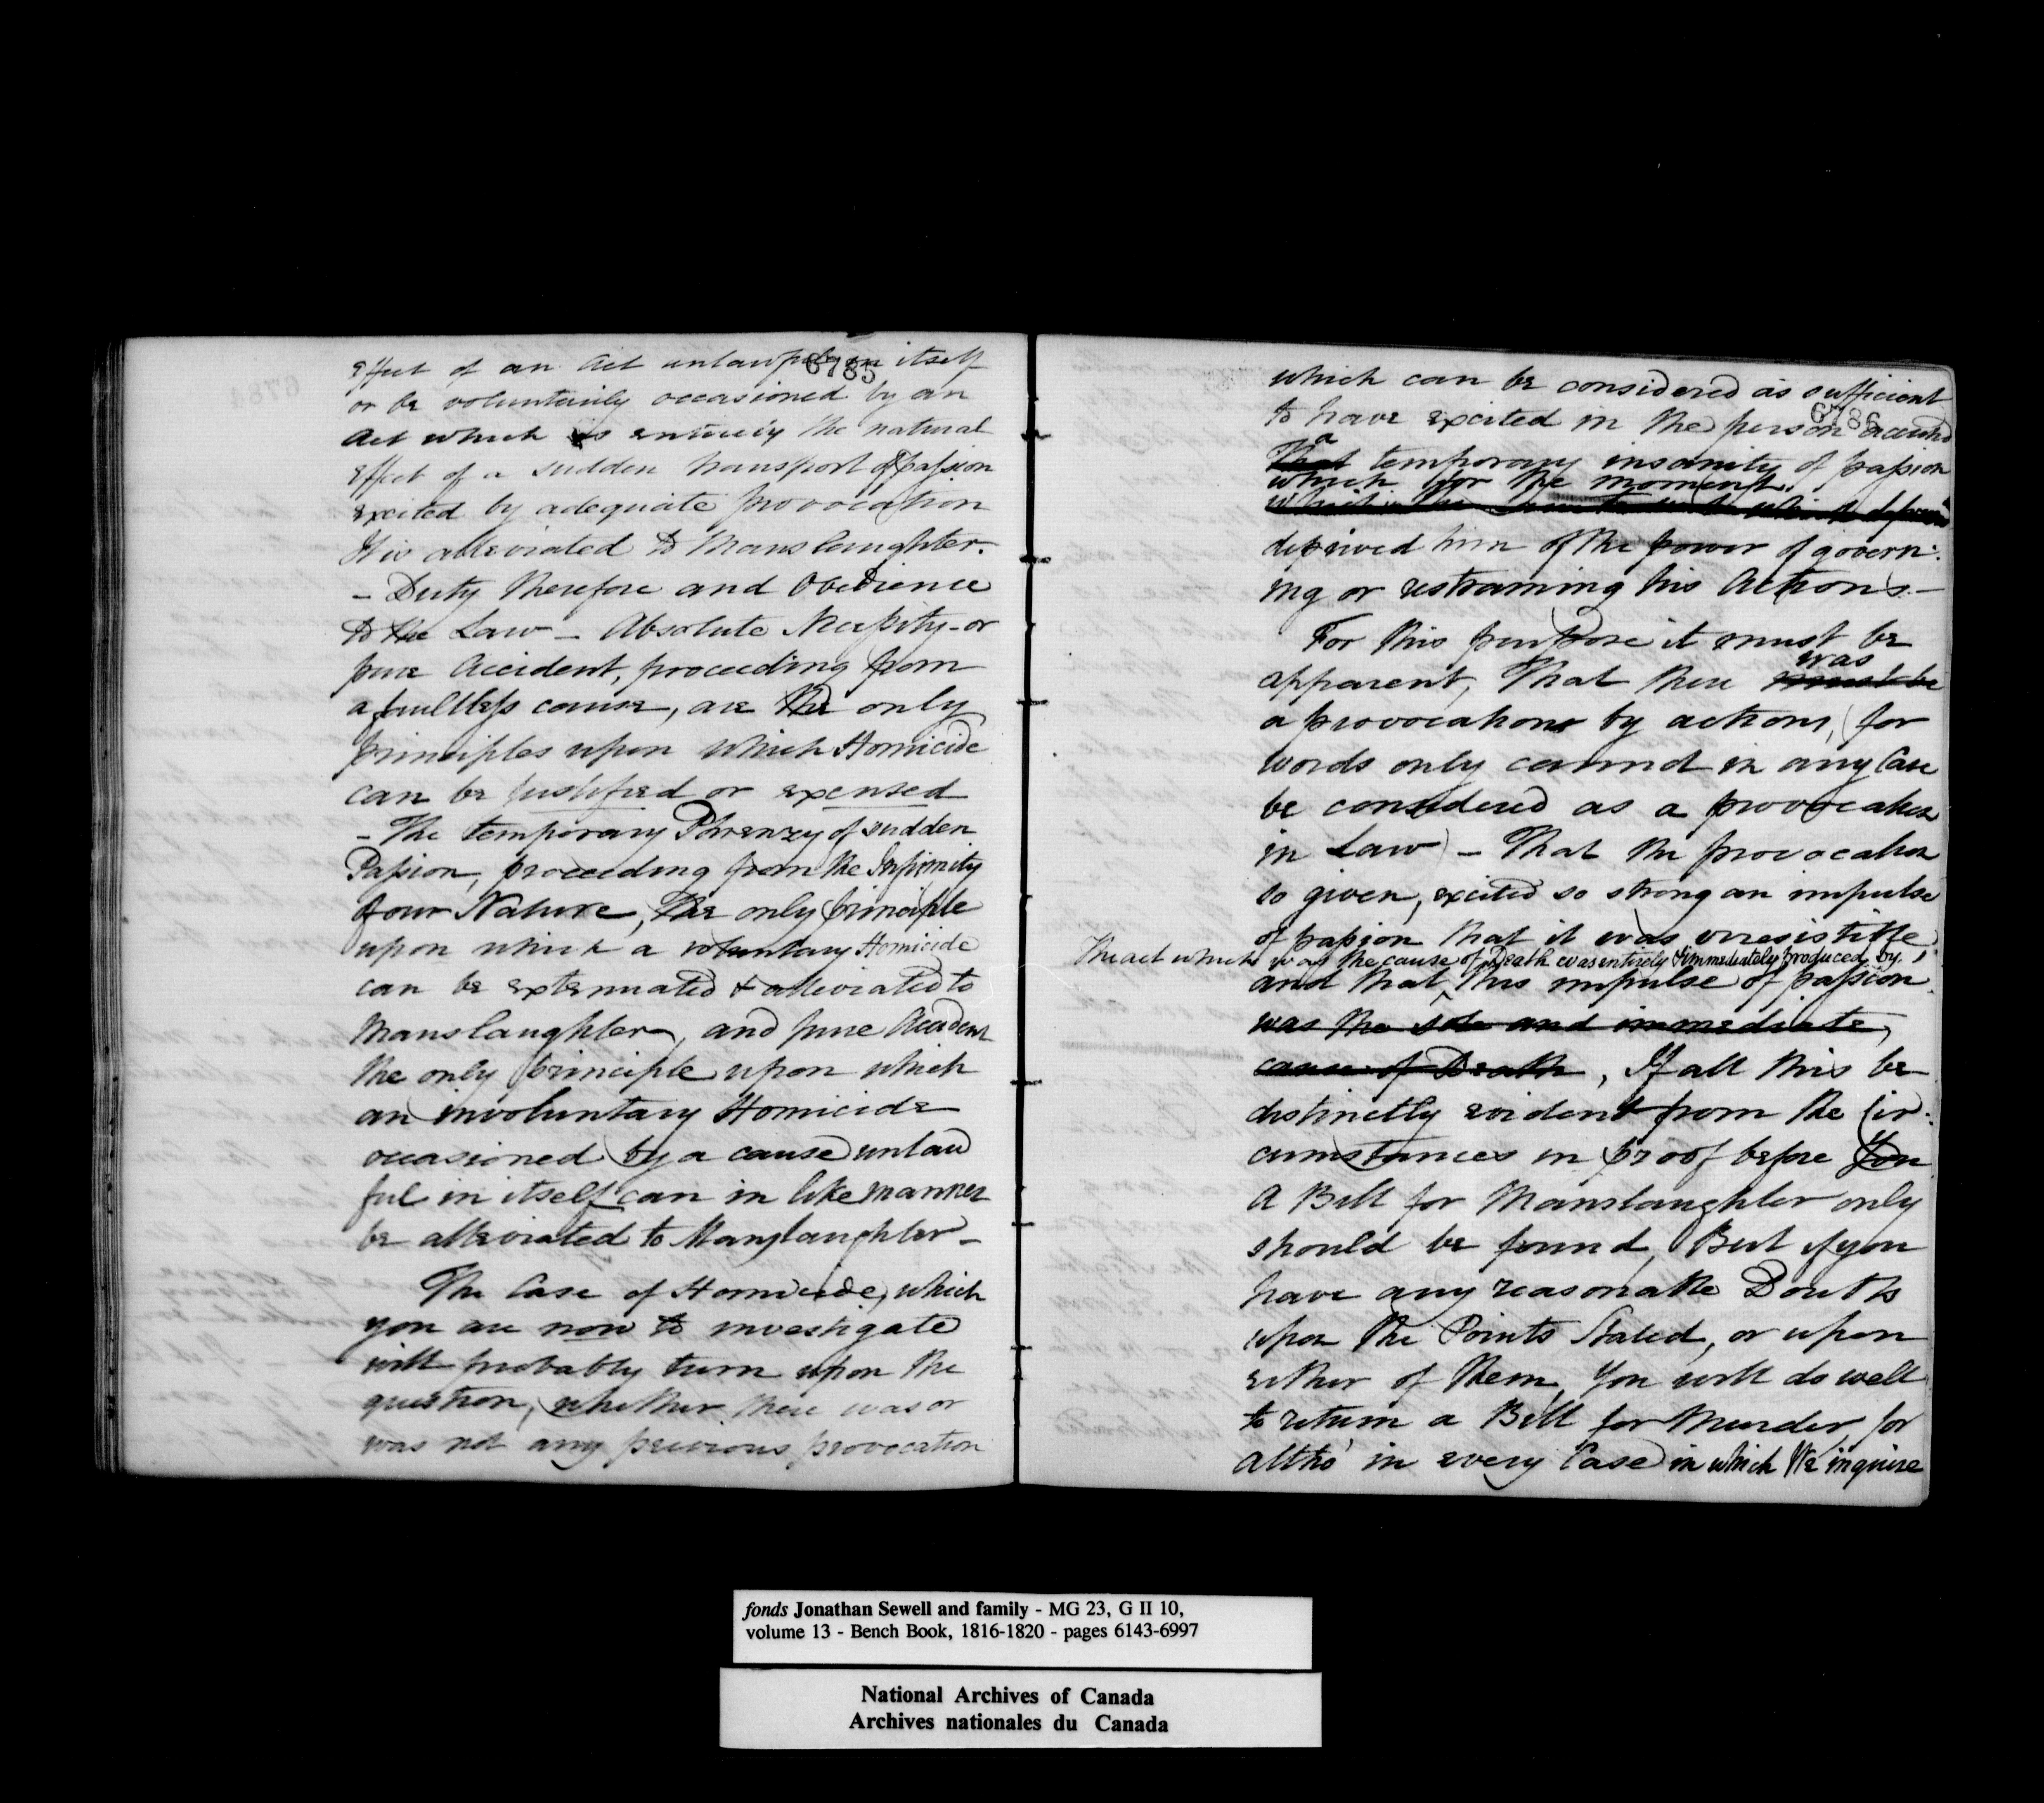 6785
effect of an Act unlawful in itself
or be voluntarily occasioned by an
Act which is entirely the natural
effect of a sudden transport of passion
excited by adequate provocation
It is alleviated to Manslaughter.
- Duty therefore and Obedience
to the Law - Absolute Necessity - or
pure Accident, proceeding from
a faultless cause, are the only
principles upon which Homicide
can be justified or excused
- The temporary Phrenzy of sudden
Passion, proceeding from the Infirmity
of our Nature, the only principle
upon which a voluntary Homicide
can be extenuated & alleviated to
Manslaughter, and pure Accident
the only principle upon which
an involuntary Homicide
occasioned by a cause unlaw
ful in itself can in like manner
be alleviated to Manslaughter -
The Case of Homicide, which
you are now to investigate
will probably turn upon the
question, whether there was or
was not any previous provocation
6786
which can be considered as sufficient
to have excited in the person accused
a
That temporary insanity of passion
which for the moment
deprived him of the power of govern:
ing or restraining his Actions -
For this purpose it must be
was
apparent, That there must be
a provocation by actions, (for
words only cannot in any Case
be considered as a provocation
in Law) - That the provocation
so given, excited so strong an impulse
of passion that it was irresistible,
The act which was the cause of Death was entirely & immediately produced by
and that this impulse of passion
was the sole and immediate
cause of Death, If all this be
distinctly evident from the Cir:
cumstances in proof before You
A Bill for Manslaughter only
should be found, But if you
have any reasonable Doubts
upon the Points Stated, or upon
either of them, You will do well
to return a Bill for Murder, for
altho' in every Case in which We inquire
fonds Jonathan Sewell and family - MG 23, G II 10,
volume 13 - Bench Book, 1816-1820 - pages 6143-6997
National Archives of Canada
Archives nationales du Canada